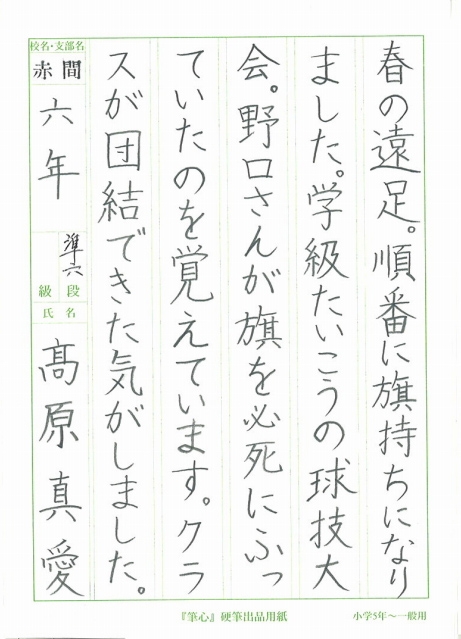 春の遠足。順番に旗持ちになり
ました。学級たいこうの球技大
会。野口さんが旗を必死にふっ
ていたのを覚えています。クラ
スが団結できた気がしました。
校名・支部名
赤間
六年
準六
級段
氏名
髙原真愛
『筆心』硬筆出品用紙
小学5年〜一般用